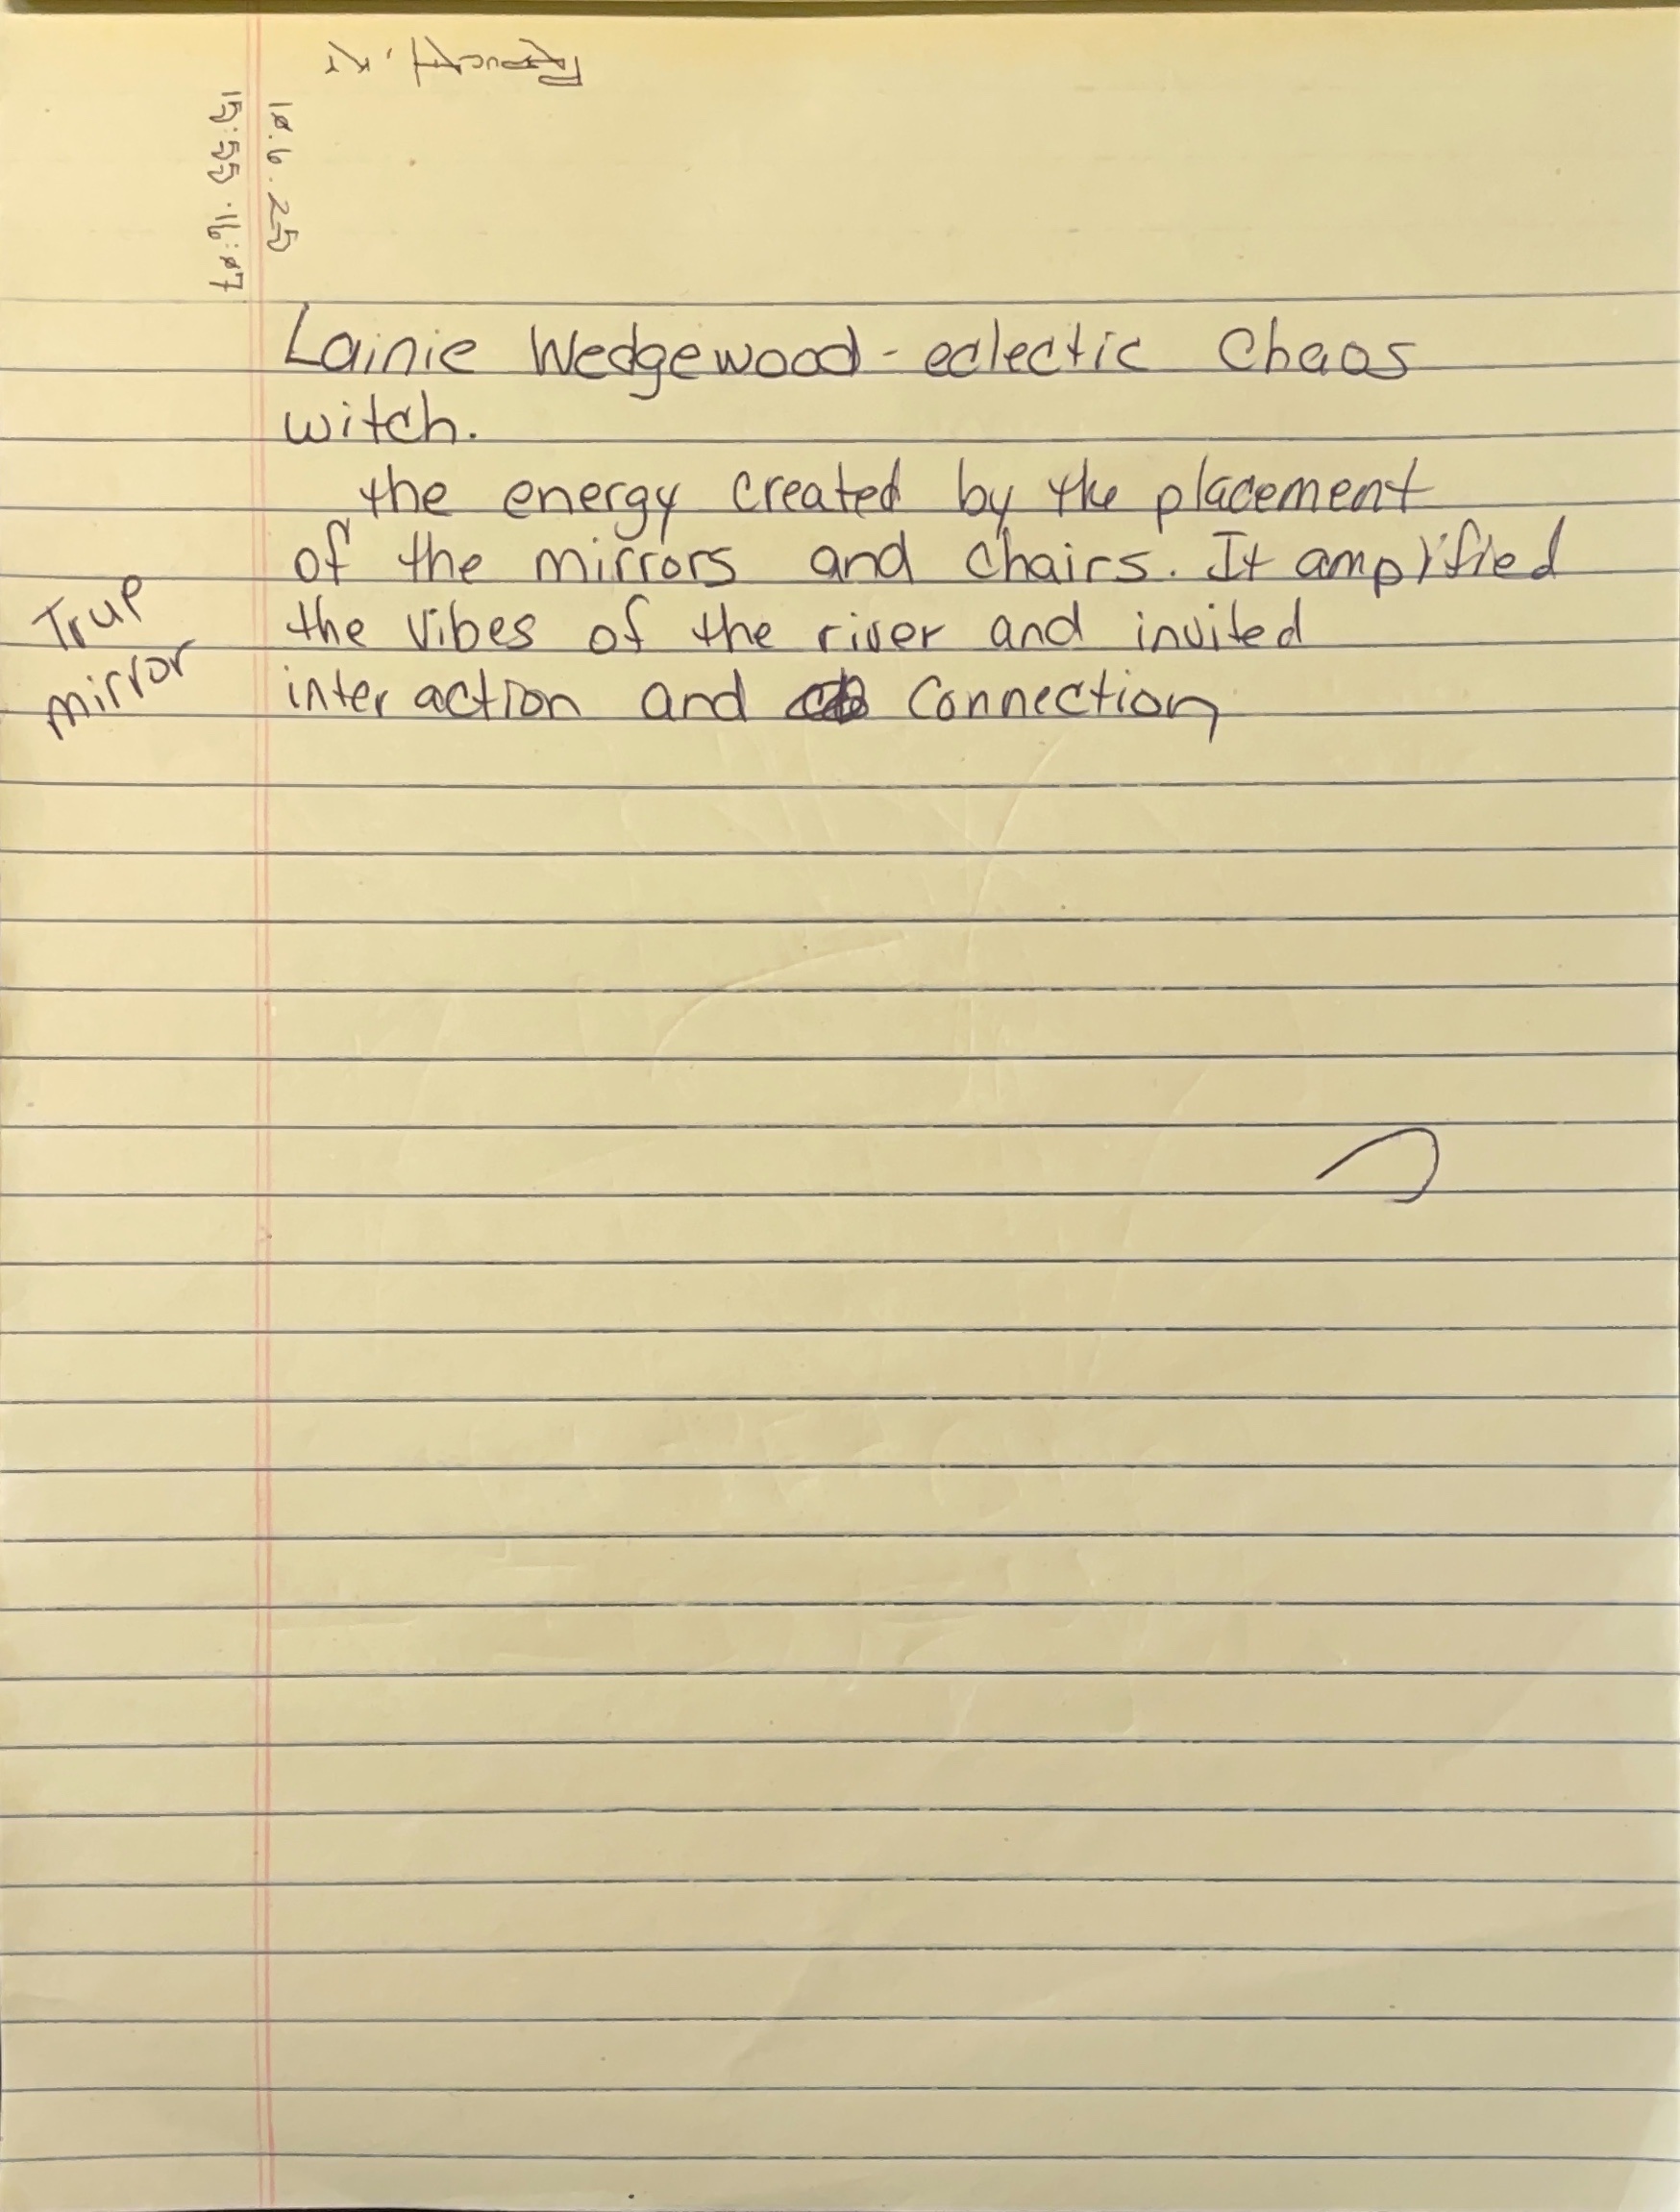 10.6.25
15:55 · 16:07
Lainie Wedgewood - eclectic Chaos
witch.
the energy created by the placement
of the mirrors and chairs. It amplified
the vibes of the river and invited
inter action and connection
True
mirror